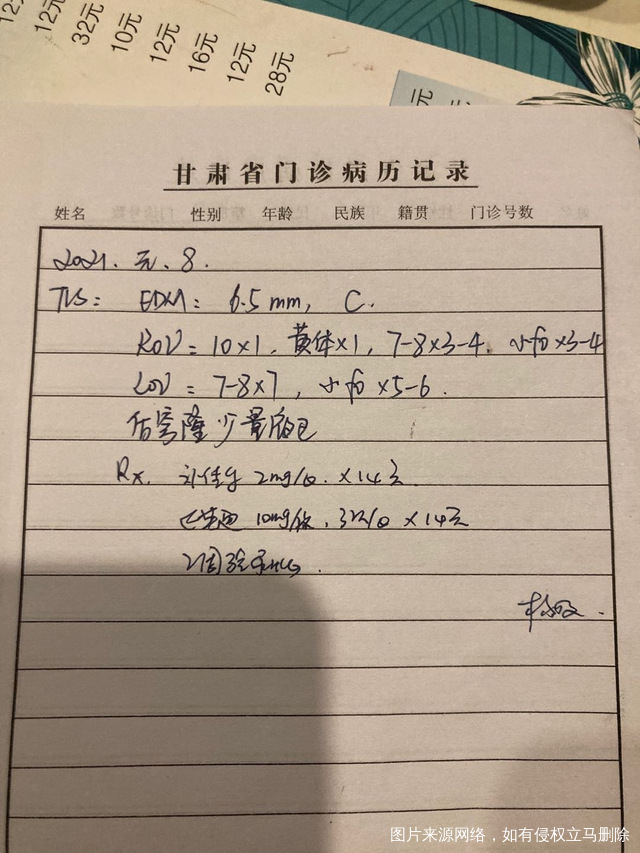 12元
12元
32元
10元
12元
16元
12元
28元
元
甘肃省门诊病历记录
姓名 性别 年龄 民族 籍贯 门诊号数
2021. 元. 8.
TVS: EDM: 6.5mm, C.
ROV: 10×1, 黄体×1, 7-8×3-4. 小fo×3-4
LOV: 7-8×7, 小fo×5-6.
后穹隆少量液
Rx. 补佳乐 2mg/日. ×14天
10mg/次, 3次/日 ×14天
2周 HCG.
图片来源网络，如有侵权立马删除